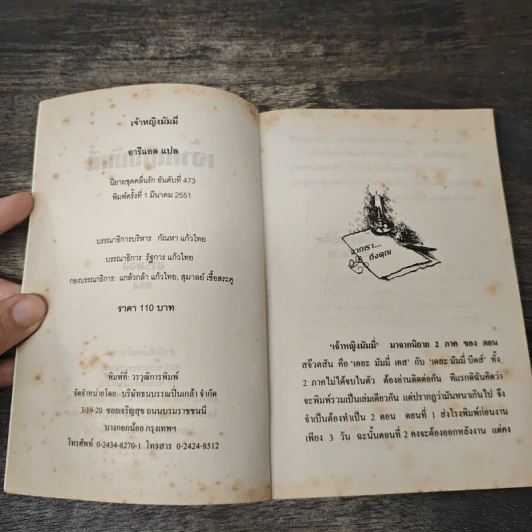 เจ้าหญิงมัมมี่
อารีแอล แปล
นิยายชุดคลื่นรัก อันดับที่ 473
พิมพ์ครั้งที่ 1 มีนาคม 2551
บรรณาธิการบริหาร กัณหา แก้วไทย
บรรณาธิการ รัฐการ แก้วไทย
กองบรรณาธิการ: แกล้วกล้า แก้วไทย, สุมาลย์ เชื้อสระคู
ราคา 110 บาท
พิมพ์ที่: วรวุฒิการพิมพ์
จัดจำหน่ายโดย: บริษัทธนบรรณปิ่นเกล้า จำกัด
3/19-20 ซอยเจริญสุข ถนนบรมราชชนนี
บางกอกน้อย กรุงเทพฯ
โทรศัพท์ 0-2434-8270-1 โทรสาร 0-2424-8512
จากเรา...
ถึงคุณ
'เจ้าหญิงมัมมี่' มาจากนิยาย 2 ภาค ของ ดอน
สจ๊วตสัน คือ 'เดอะ มัมมี่ เคส' กับ 'เดอะ มัมมี่ บีดส์' ทั้ง
2 ภาคไม่ได้จบในตัว ต้องอ่านติดต่อกัน ทีแรกดิฉันคิดว่า
จะพิมพ์รวมเป็นเล่มเดียวกัน แต่ปรากฏว่ามันหนาเกินไป จึง
จำเป็นต้องทำเป็น 2 ตอน ตอนที่ 1 ส่งโรงพิมพ์ก่อนงาน
เพียง 3 วัน ฉะนั้นตอนที่ 2 คงจะต้องออกหลังงาน แต่คง